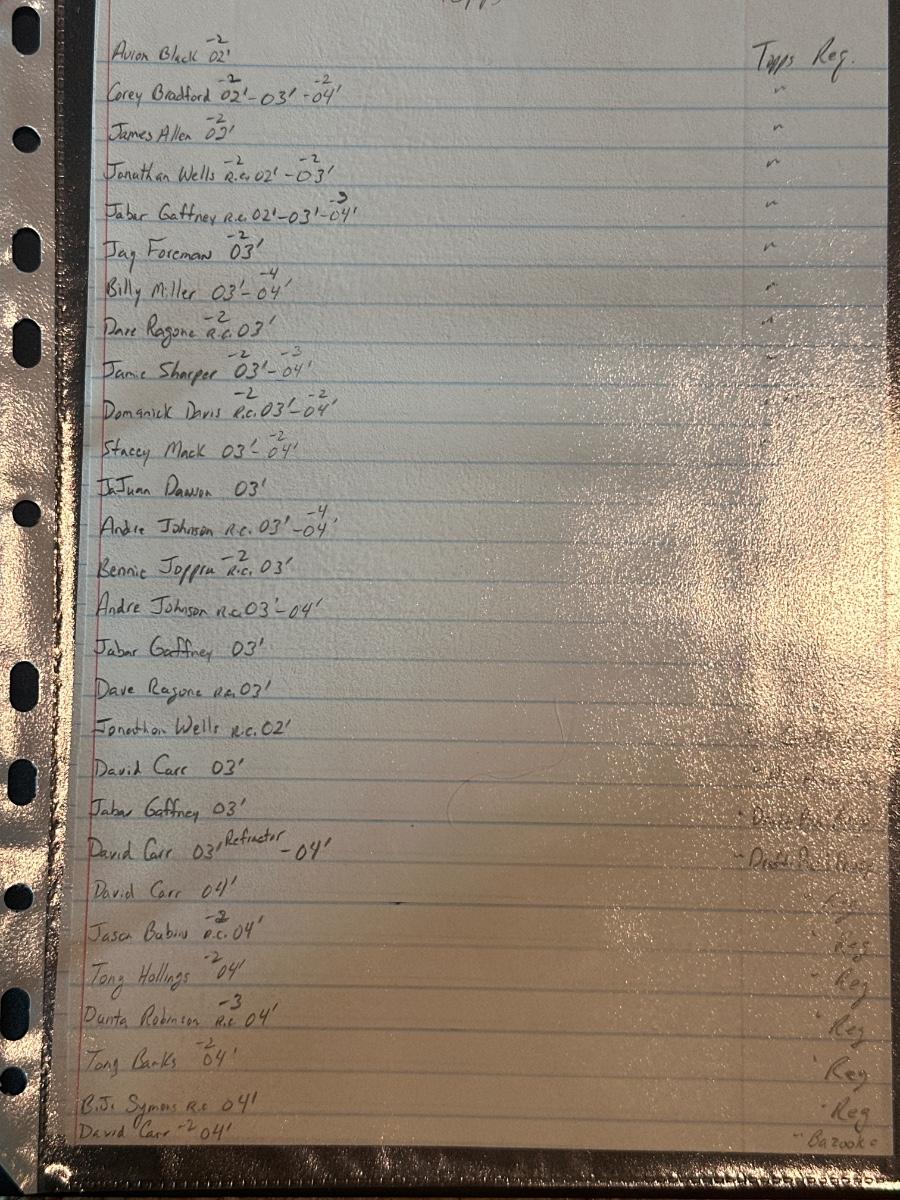 Avion Black -2 02' Topps Reg.
Corey Bradford -2 02'-03'-2 -04' "
James Allen -2 02' "
Jonathan Wells -2 R.C. 02'-2 -03' "
Jabar Gaffney R.C. 02'-03'-3 -04' "
Jay Foreman -2 03' "
Billy Miller 03'-4 -04' "
Dave Ragone -2 R.C. 03' "
Jamie Sharper -2 03'-3 -04' "
Domanick Davis -2 R.C. 03'-2 -04'
Stacey Mack 03'-2 -04'
JaJuan Dawson 03'
Andre Johnson R.C. 03'-4 -04'
Bennie Joppru -2 R.C. 03'
Andre Johnson R.C. 03'-04'
Jabar Gaffney 03'
Dave Ragone R.C. 03'
Jonathan Wells R.C. 02'
David Carr 03'
Jabar Gaffney 03'
David Carr 03' Refractor -04' " Draft
David Carr 04' " Reg
Jason Babin -2 R.C. 04' " Reg
Tony Hollings -2 04' " Reg
Dunta Robinson -3 R.C 04' " Reg
Tony Banks -2 04' " Reg
B.J. Symons R.C 04' " Reg
David Carr -2 04' " Bazooka